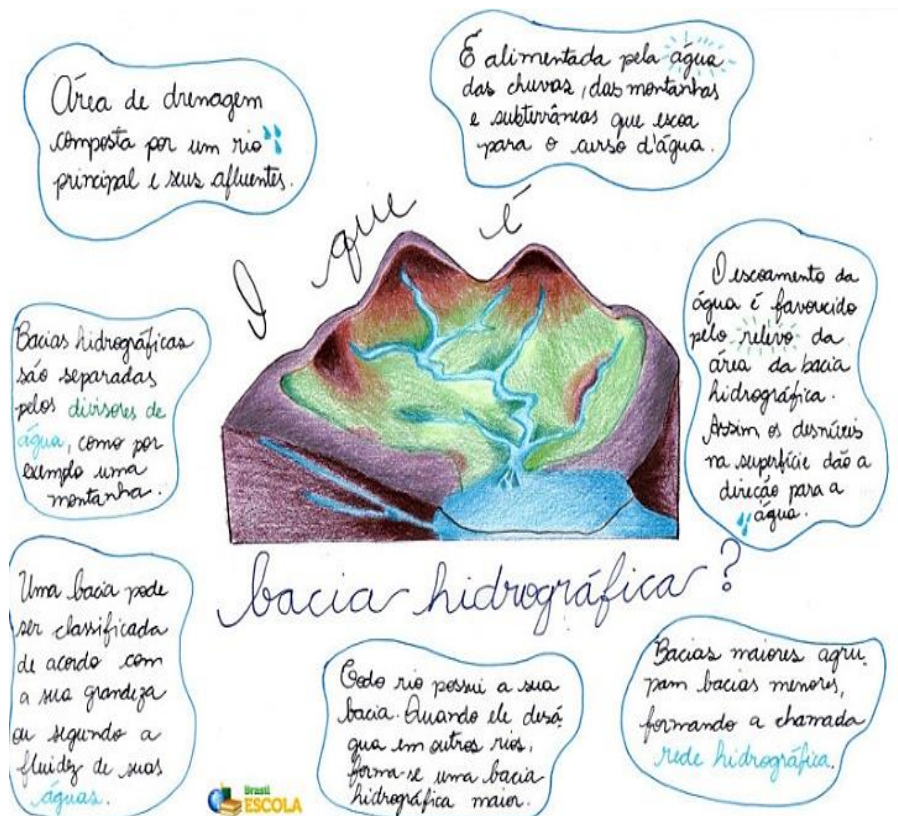 O que é
bacia hidrográfica?
Área de drenagem
composta por um rio
principal e seus afluentes.
É alimentada pela água
das chuvas, das montanhas
e subterrâneas que escoa
para o curso d'água.
Bacias hidrográficas
são separadas
pelos divisores de
água, como por
exemplo uma
montanha.
O escoamento da
água é favorecido
pelo relevo da
área da bacia
hidrográfica.
Assim os desníveis
na superfície dão a
direção para a
água.
Uma bacia pode
ser classificada
de acordo com
a sua grandeza
ou segundo a
fluidez de suas
águas.
Todo rio possui a sua
bacia. Quando ele desá-
gua em outros rios,
forma-se uma bacia
hidrográfica maior.
Bacias maiores agru-
pam bacias menores,
formando a chamada
rede hidrográfica.
Brasil
ESCOLA